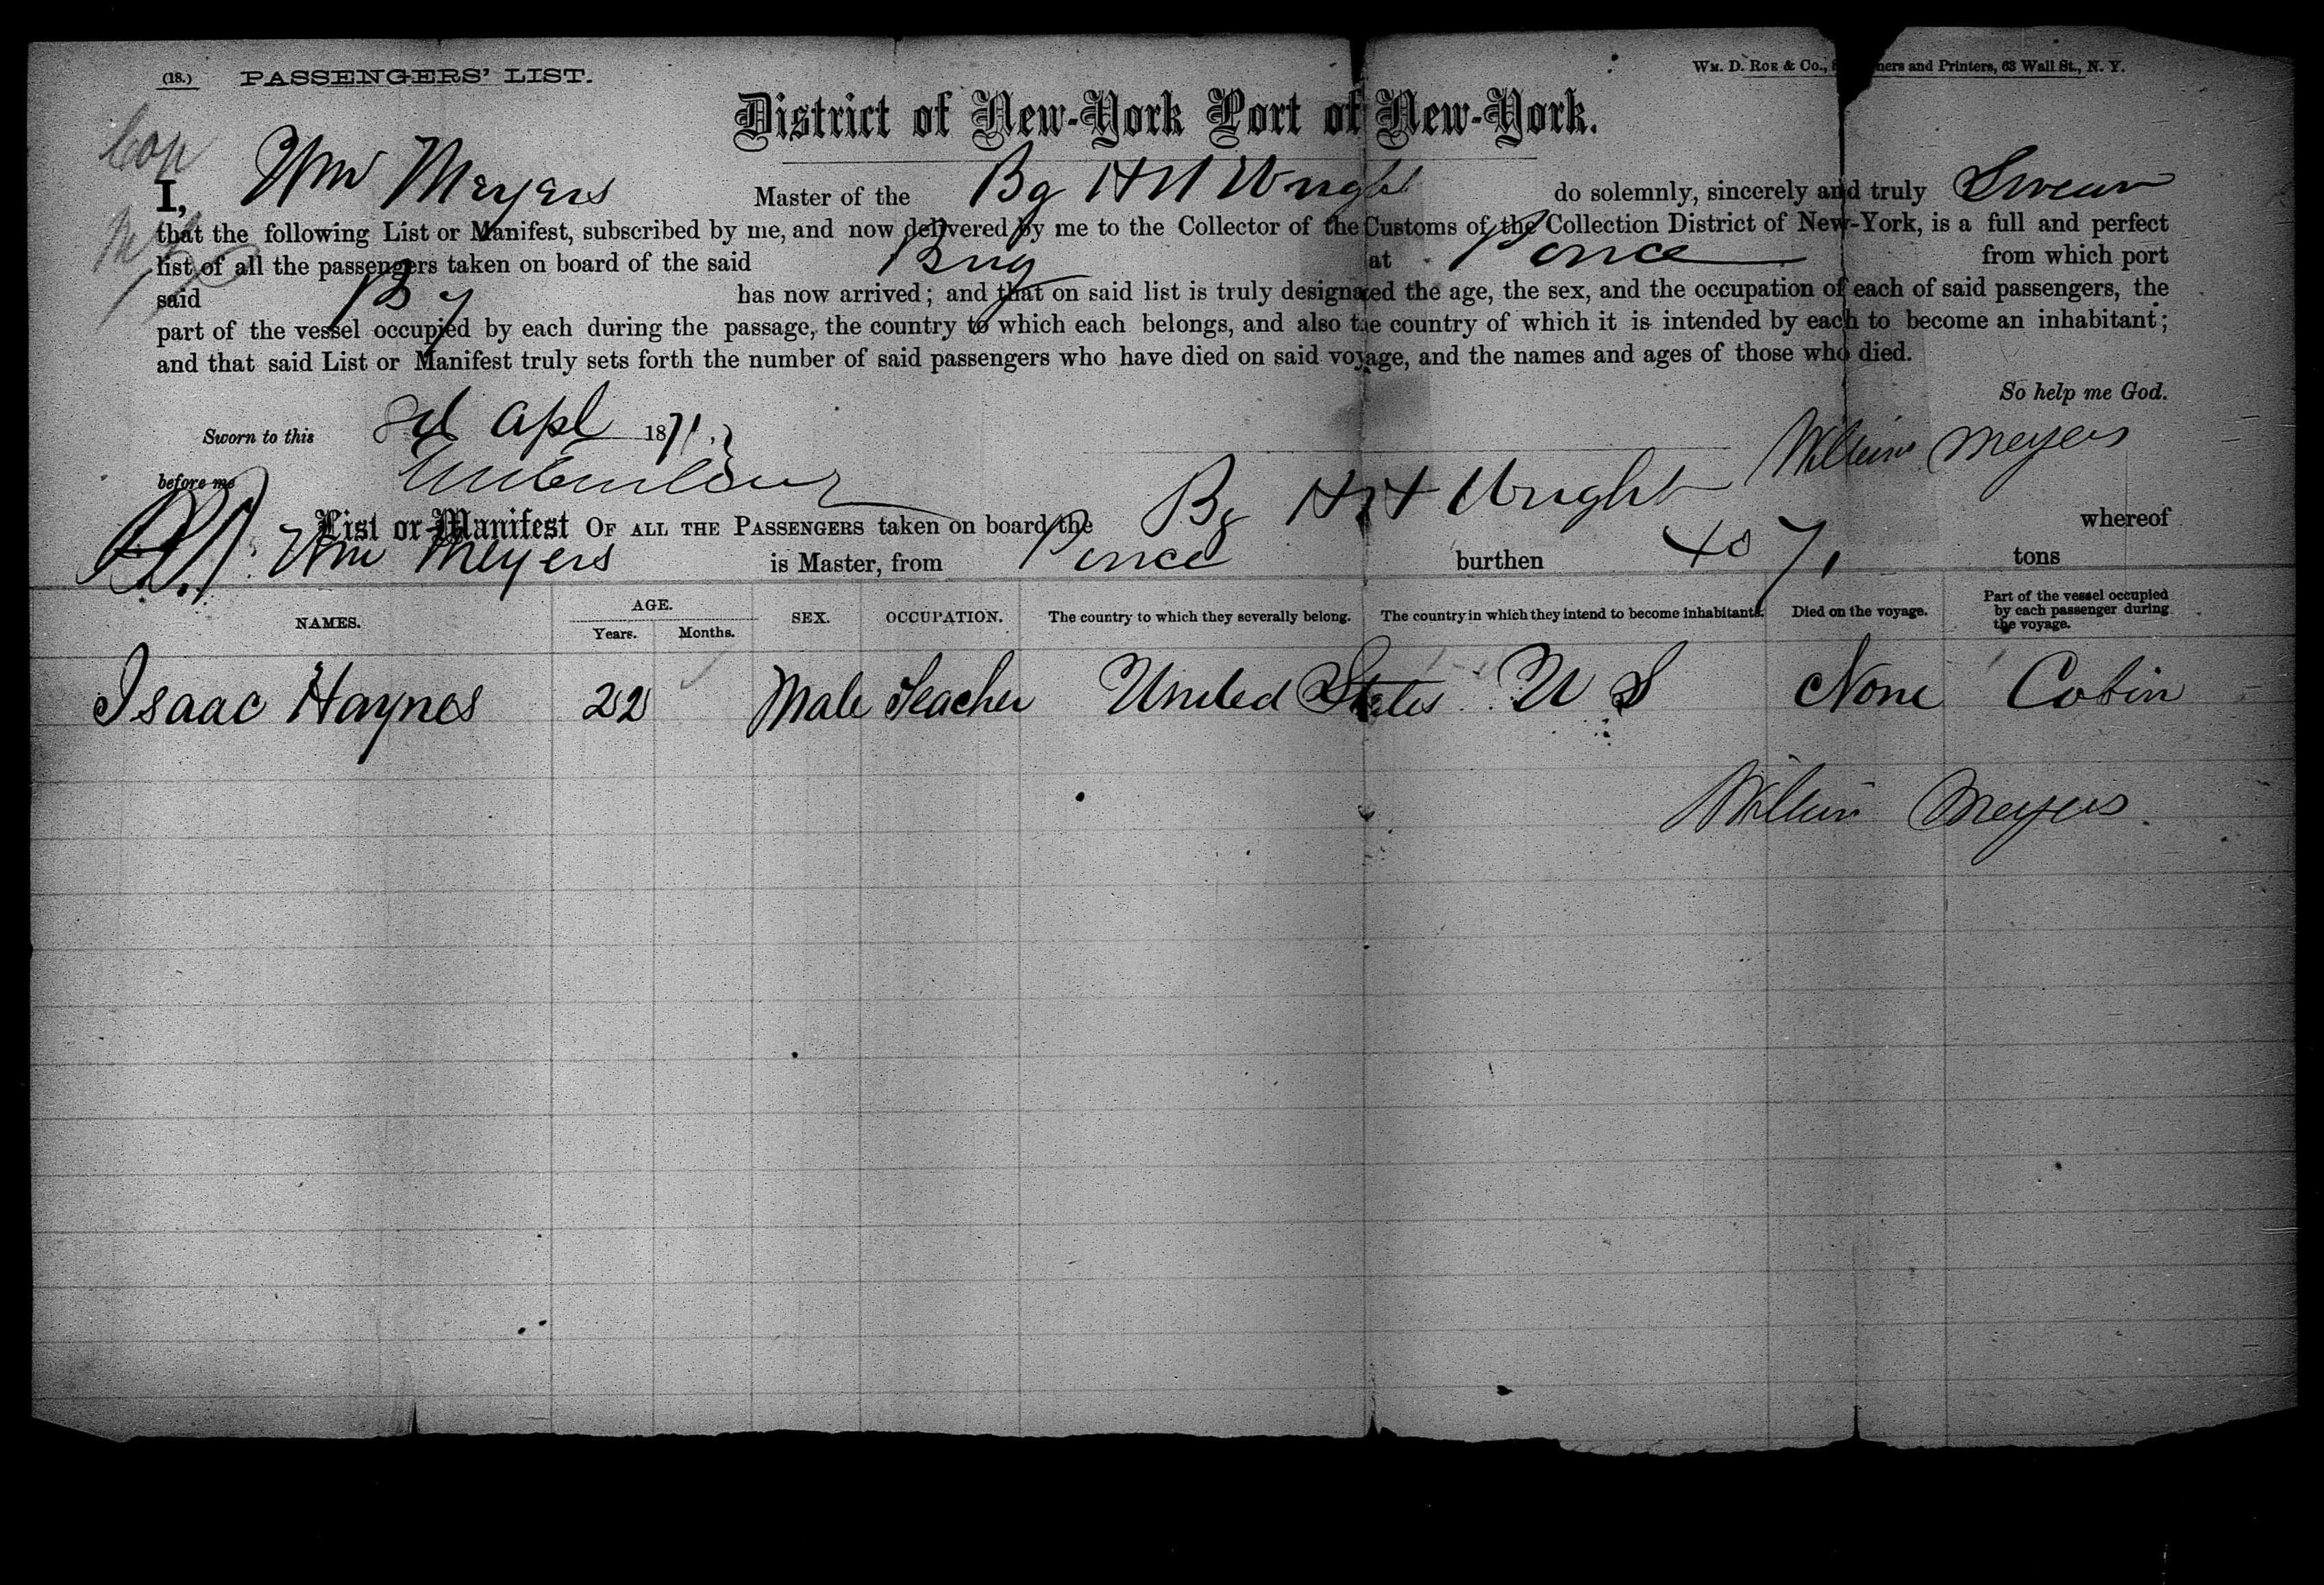 (18.) PASSENGERS' LIST.
WM. D. ROE & Co., and Printers, 63 Wall St., N. Y.
District of New-York Port of New-York.
Cop
I, Wm Meyers Master of the Bg H H Wright do solemnly, sincerely and truly Swear
that the following List or Manifest, subscribed by me, and now delivered by me to the Collector of the Customs of the Collection District of New-York, is a full and perfect
list of all the passengers taken on board of the said Brig at Ponce from which port
said Bg has now arrived; and that on said list is truly designated the age, the sex, and the occupation of each of said passengers, the
part of the vessel occupied by each during the passage, the country to which each belongs, and also the country of which it is intended by each to become an inhabitant;
and that said List or Manifest truly sets forth the number of said passengers who have died on said voyage, and the names and ages of those who died.
So help me God.
Sworn to this Apl 1871.
William Meyers
before me
List or Manifest OF ALL THE PASSENGERS taken on board the Bg H H Wright whereof
Wm Meyers is Master, from Ponce burthen tons
NAMES. AGE. Years. Months. SEX. OCCUPATION. The country to which they severally belong. The country in which they intend to become inhabitants. Died on the voyage. Part of the vessel occupied by each passenger during the voyage.
Isaac Haynes 22 Male Teacher United States U S None Cabin
William Meyers